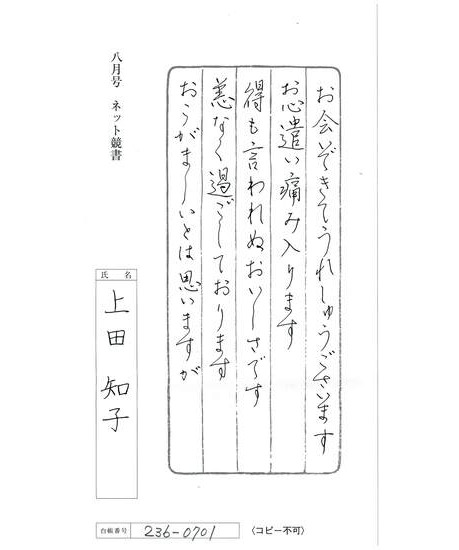 お会いできてうれしゅうございます
お心遣い痛み入ります
得も言われぬおいしさです
恙なく過ごしております
おこがましいとは思いますが
八月号 ネット競書
氏名
上田 知子
台帳番号 236-0701 (コピー不可)